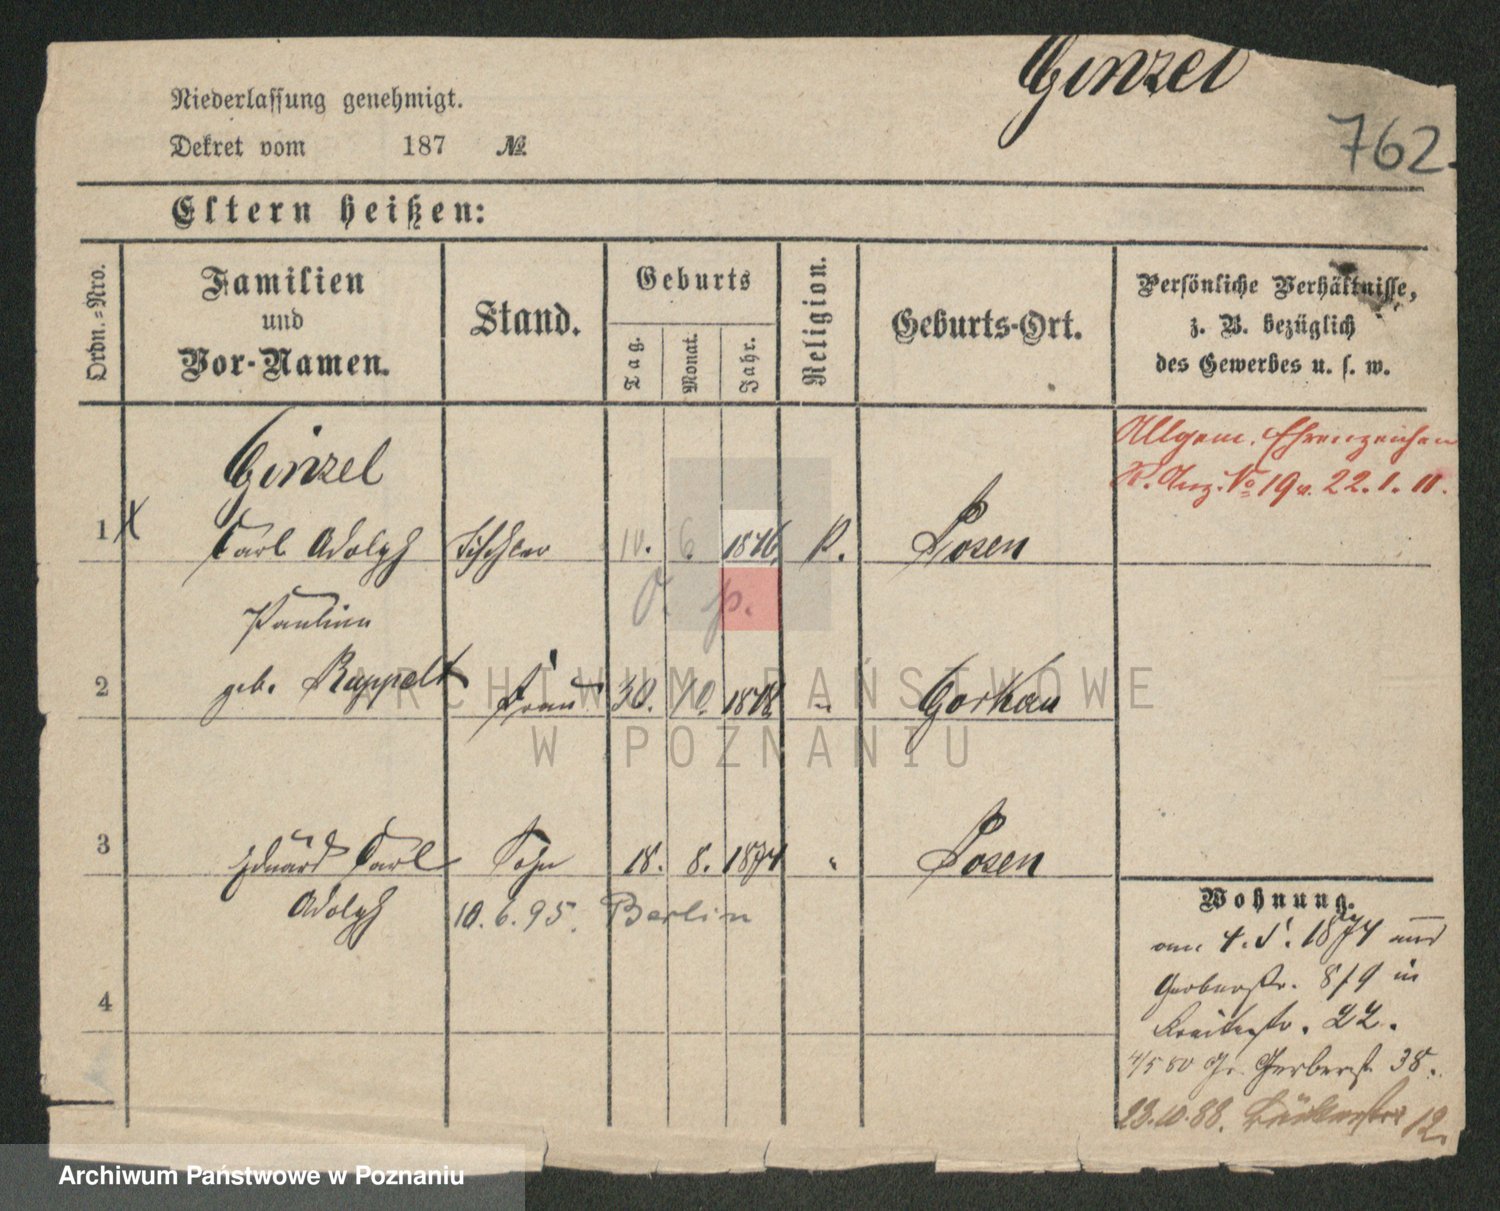 Ginzel
762.
Niederlassung genehmigt.
Dekret vom 187 №
Eltern heißen:
Ordn.=Nro.
Familien
und
Vor-Namen.
Stand.
Geburts
Tag.
Monat.
Jahr.
Religion.
Geburts-Ort.
Persönliche Verhältnisse,
z. B. bezüglich
des Gewerbes u. s. w.
Allgem. Ehrenzeichen
R. Anz. No 19 v. 22.1.11.
Ginzel
1 Carl Adolph Tischler 10. 6. 1846 Posen
Pauline
2 geb. Rappelt Frau 30. 10. Gorkau
3 Eduard Carl Sohn 18. 8. 1874 " Posen
Adolph 10.6.95. Berlin
4
Wohnung.
am 4. 5. 1874 aus
Gerberstr. 8/9 in
Breitestr. 22.
4/5 80 Gr. Gerberst. 38.
23.10.88. 12.
ARCHIWUM PAŃSTWOWE
W POZNANIU
Archiwum Państwowe w Poznaniu